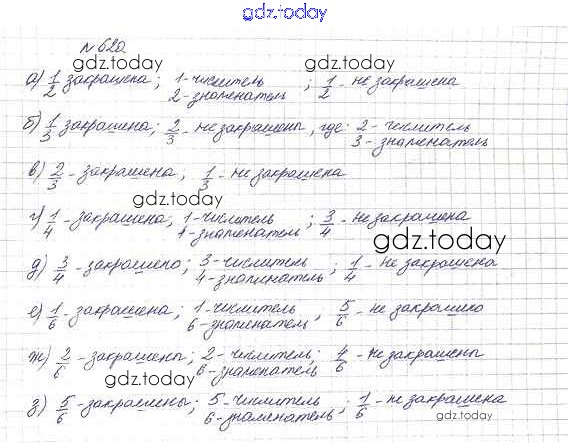 gdz.today
№ 620
gdz.today gdz.today
а) 1/2 закрашена; 1-числитель ; 1/2 - не закрашена
2-знаменатель
б) 1/3 закрашена; 2/3 - не закрашены, где: 2- числитель
3- знаменатель
в) 2/3 - закрашена, 1/3 - не закрашена
gdz.today
г) 1/4 - закрашена, 1-числитель ; 3/4 - не закрашена
1-знаменатель
gdz.today
д) 3/4 - закрашено; 3-числитель ; 1/4 - не закрашена
4-знаменатель
е) 1/6 - закрашена; 1-числитель ; 5/6 - не закрашено
6-знаменатель
ж) 2/6 - закрашены; 2- числитель; 4/6 - не закрашены
6-знаменатель
gdz.today
з) 5/6 - закрашены; 5-числитель ; 1/6 - не закрашена
6-знаменатель
gdz.today